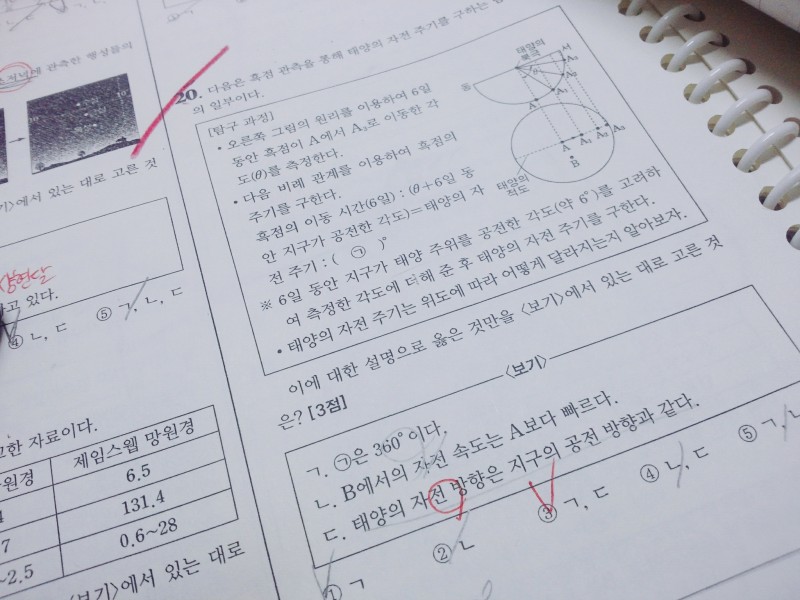 에 관측한 행성들의
에서 있는 대로 고른 것
고 있다.
④ ㄴ, ㄷ ⑤ ㄱ, ㄴ, ㄷ
한 자료이다.
원경 제임스웹 망원경
6.5
131.4
7 0.6~28
~2.5
보기>에서 있는 대로
20. 다음은 흑점 관측을 통해 태양의 자전 주기를 구하는
의 일부이다.
[탐구 과정]
• 오른쪽 그림의 원리를 이용하여 6일
동안 흑점이 A에서 A₃로 이동한 각
도(θ)를 측정한다.
• 다음 비례 관계를 이용하여 흑점의
주기를 구한다.
흑점의 이동 시간(6일) : (θ+6일 동
안 지구가 공전한 각도)=태양의 자
전 주기 : ( ㉠ )°
※ 6일 동안 지구가 태양 주위를 공전한 각도(약 6°)를 고려하
여 측정한 각도에 더해 준 후 태양의 자전 주기를 구한다.
• 태양의 자전 주기는 위도에 따라 어떻게 달라지는지 알아보자.
태양의
북극
서
동
θ
A₃
A₂
A₁
A
A A₁ A₂ A₃
B
태양의
적도
이에 대한 설명으로 옳은 것만을 <보기>에서 있는 대로 고른 것
은? [3점]
<보기>
ㄱ. ㉠은 360°이다.
ㄴ. B에서의 자전 속도는 A보다 빠르다.
ㄷ. 태양의 자전 방향은 지구의 공전 방향과 같다.
① ㄱ ② ㄴ ③ ㄱ, ㄷ ④ ㄴ, ㄷ ⑤ ㄱ, ㄴ